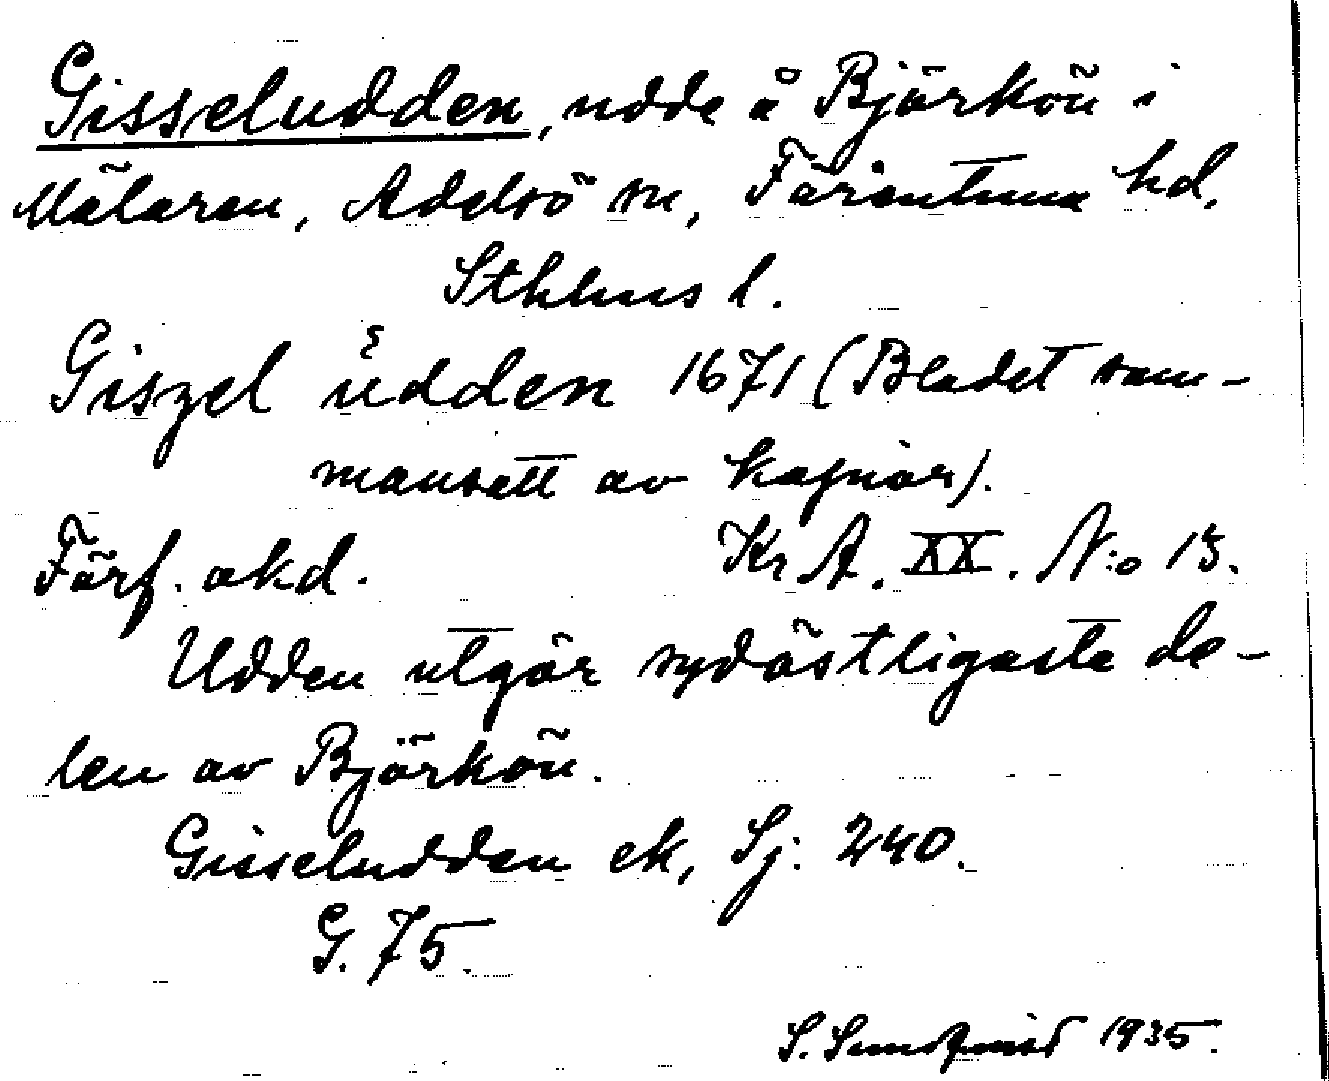 Gisseludden, udde å Björkön i
Mälaren, Adelsö sn, Färentuna hd,
Sthlms l.
Giszel udden 1671 (Bladet sam-
mansatt av kopior).
Förf. akd. Kr A. XX. N:o 13.
Udden utgör sydöstligaste de-
len av Björkön.
Gisseludden ek, Sj: 240.
G. 75.
S. Sundqvist 1935.